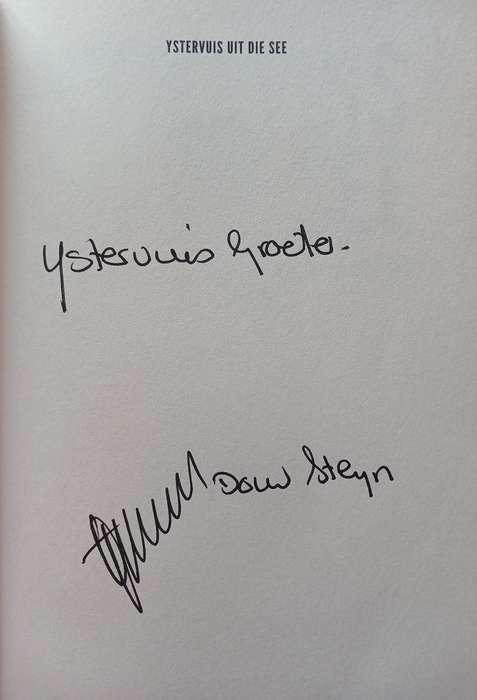 YSTERVUIS UIT DIE SEE
Ystervuis Groete.
Douw Steyn